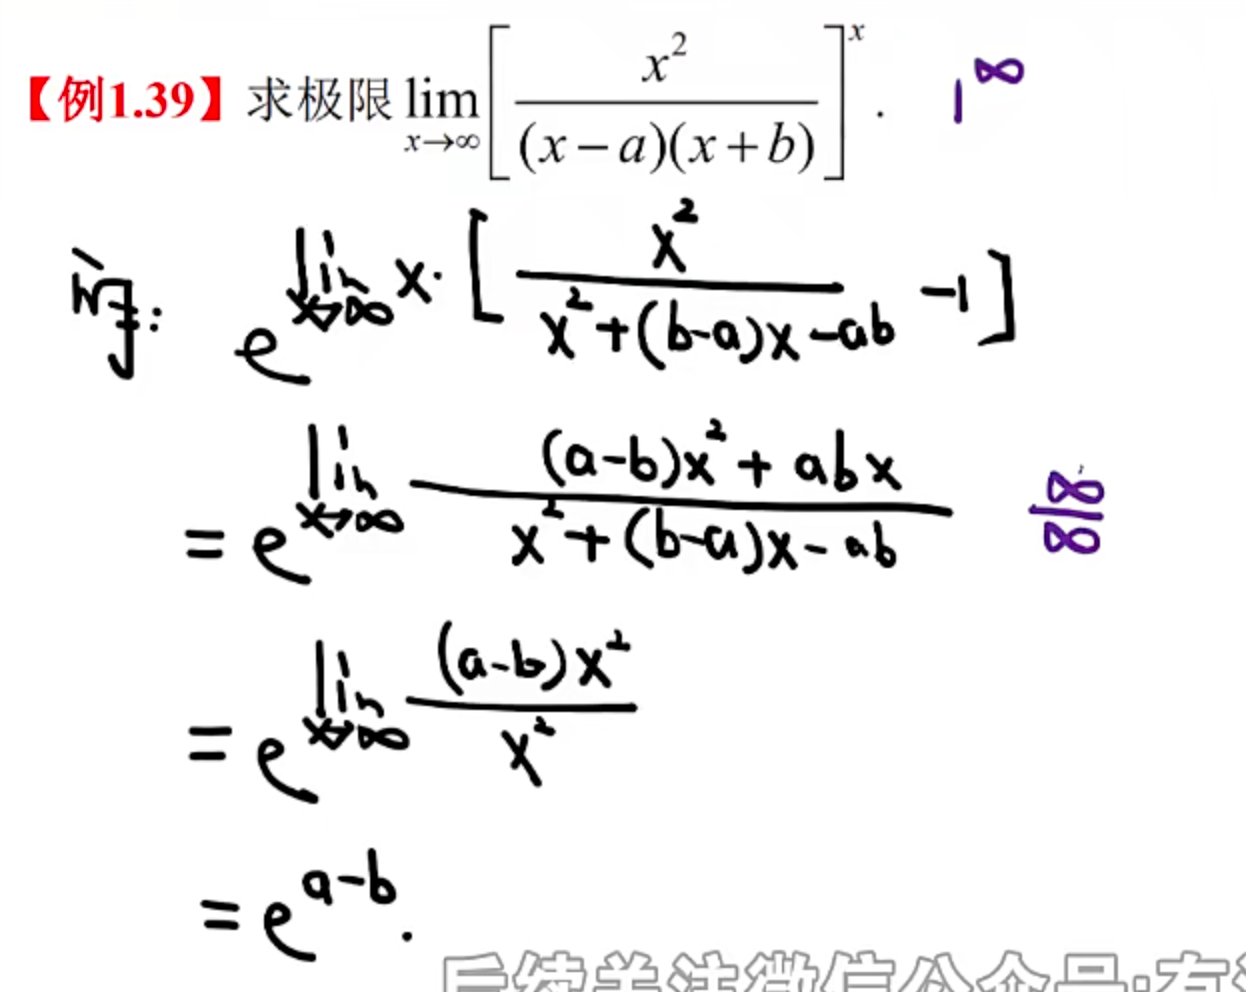 【例1.39】求极限 lim x→∞ [ x² / (x−a)(x+b) ]^x . 1^∞
解: e^{lim x→∞ x·[ x² / x²+(b-a)x-ab -1 ]}
= e^{lim x→∞ (a-b)x²+abx / x²+(b-a)x-ab} ∞/∞
= e^{lim x→∞ (a-b)x² / x²}
= e^{a-b}.
后续关注微信公众号:有